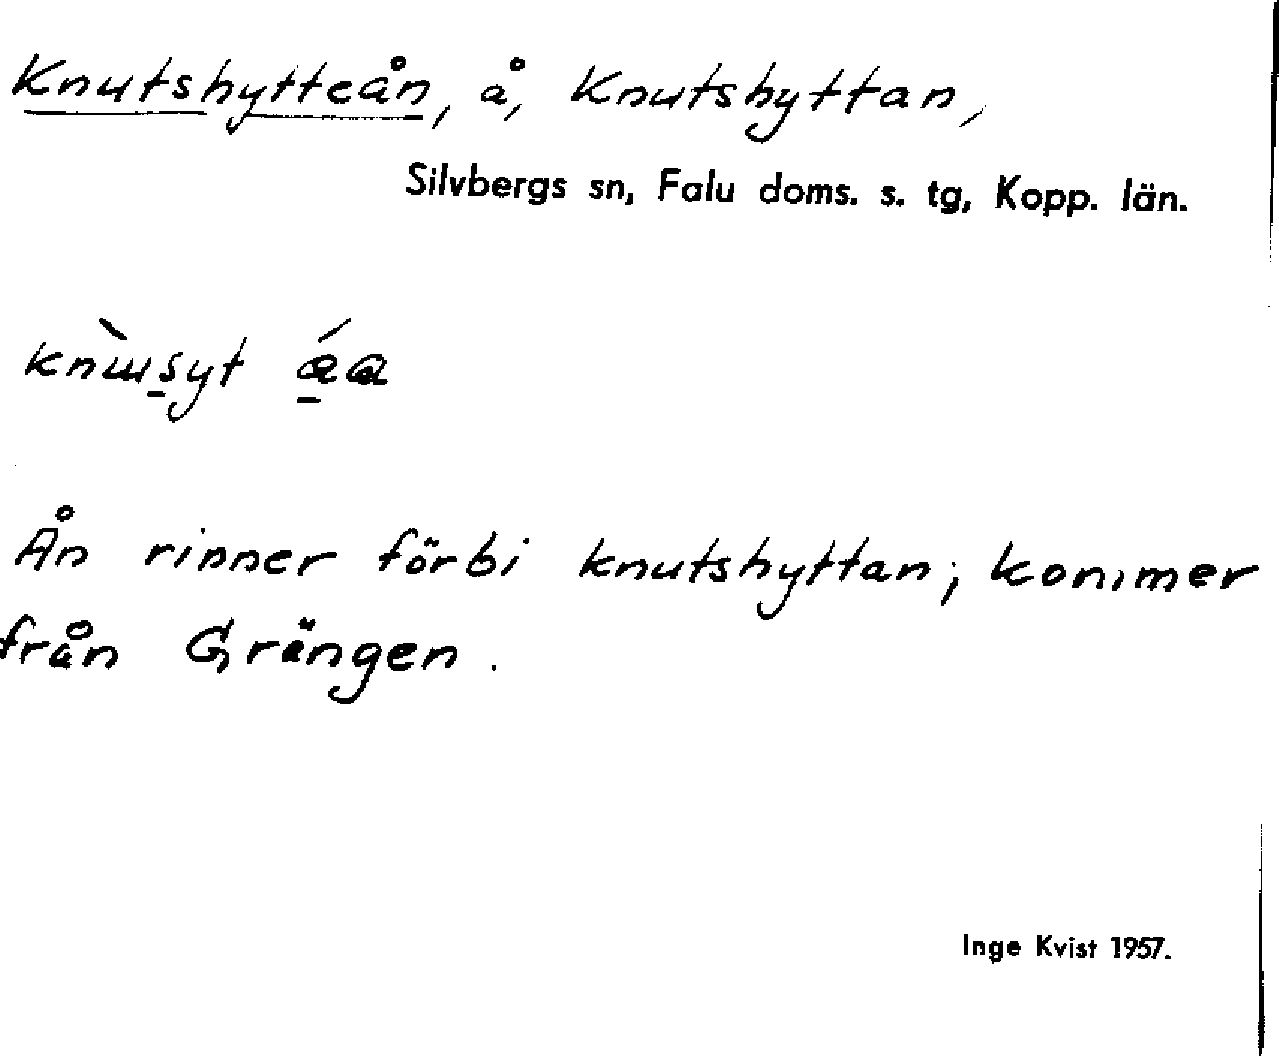 Knutshytteån, å, Knutshyttan,
Silvbergs sn, Falu doms. s. tg, Kopp. län.
Ån rinner förbi knutshyttan, kommer
från Grängen.
Inge Kvist 1957.